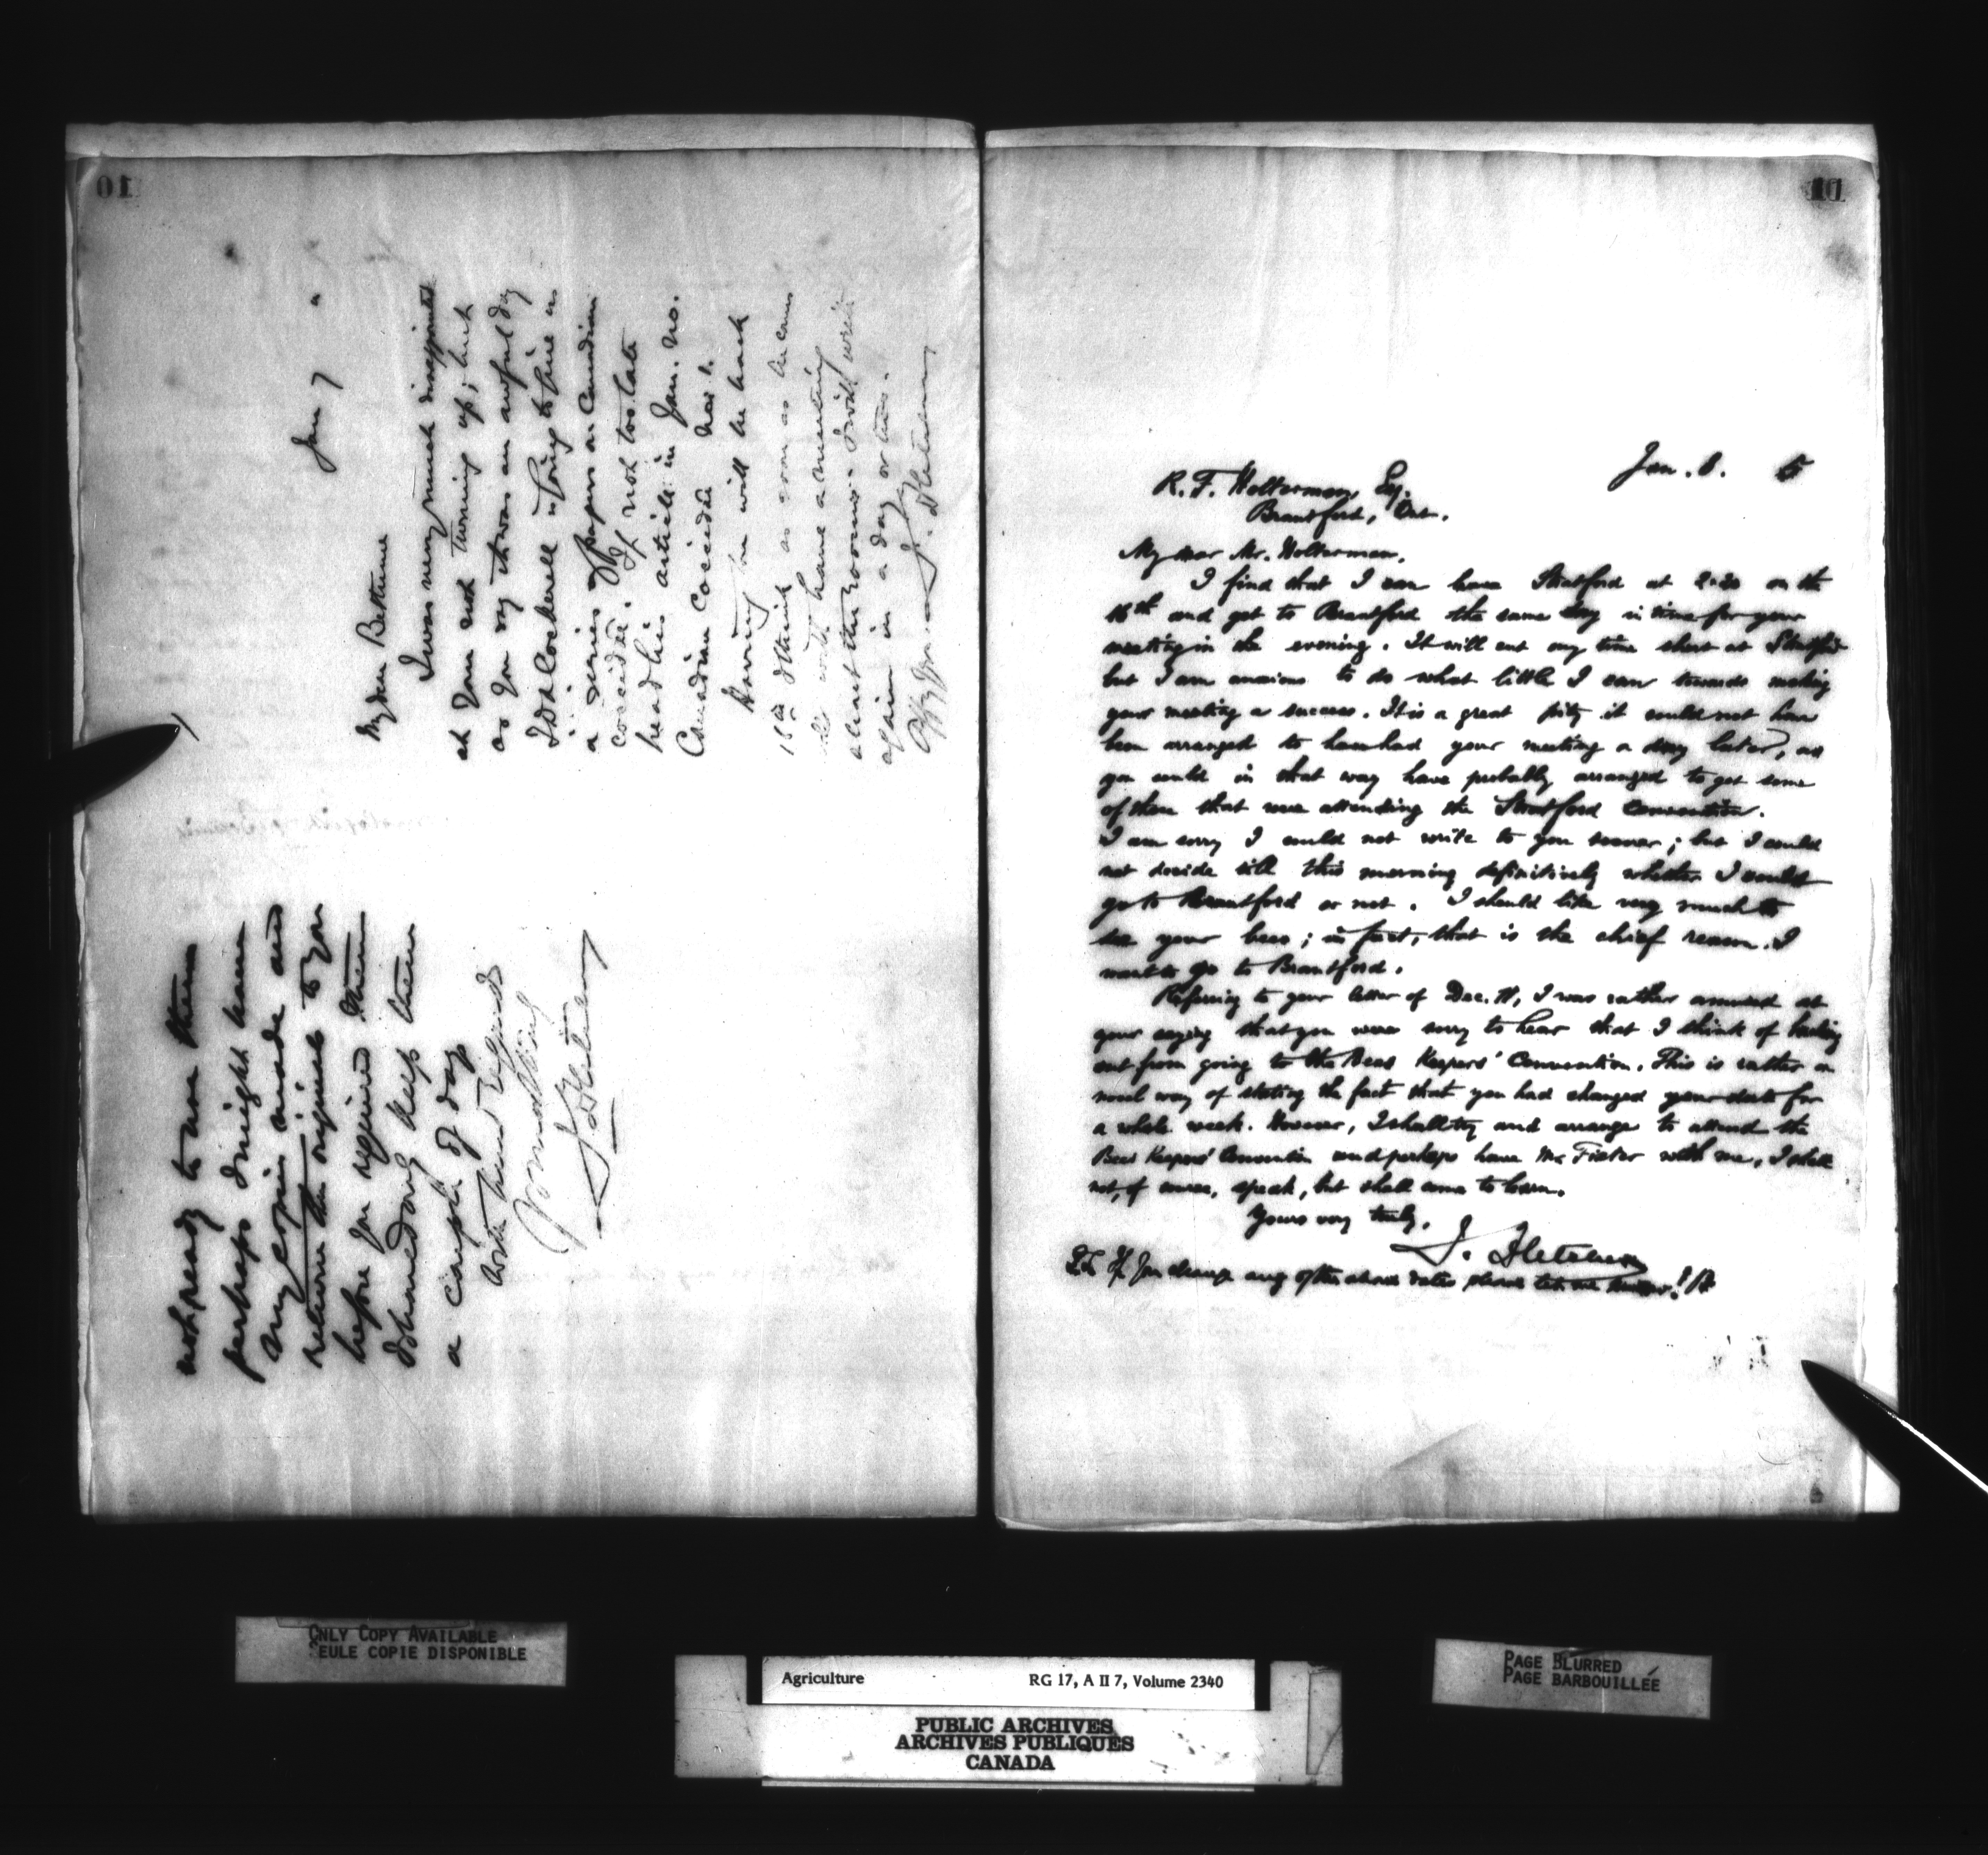 10
not ready to use them
perhaps I might have
my copies made and
return the originals to you
before you required them
I should only keep them
a couple of days
With kind regards
Yours truly
J. Fletcher
Jan 7 "
My dear Bethune
I was very much disappointed
at your not turning up; but
as you say it was an awful day
T.D.A. Cockerell is going to give us
a series of papers on Canadian
Coccidæ. If not too late
head his article in Jan. no.
Canadian Coccidæ No 1.
Harrington will be back
15th I think as soon as he comes
we will have a meeting
about the rooms. I will write
again in a day or two.
J. Fletcher
11
Jan. 8. 5
R. F. Holterman, Esq.
Brantford, Ont.
My dear Mr. Holterman,
I find that I can leave Stratford at 2.30 on the
16th and get to Brantford the same day in time for your
meeting in the evening. It will cut my time short at Stratford
but I am anxious to do what little I can towards making
your meeting a success. It is a great pity it could not have
been arranged to have had your meeting a day later, as
you could in that way have probably arranged to get some
of those that were attending the Stratford Convention.
I am sorry I could not write to you sooner; but I could
not decide till this morning definitively whether I could
go to Brantford or not. I should like very much to
see your bees; in fact, that is the chief reason I
want to go to Brantford.
Referring to your letter of Dec. 11, I was rather amused at
your saying that you were sorry to hear that I think of backing
out from going to the Bees Keepers' Convention. This is rather a
novel way of stating the fact that you had changed your date for
a whole week. However, I shall try and arrange to attend the
Bees Keepers' Convention and perhaps have Mr. Fixter with me, I shall
not, of course, speak, but shall come to learn.
Yours very truly,
J. Fletcher
If you change any of the above dates please let me know! JF
ONLY COPY AVAILABLE
SEULE COPIE DISPONIBLE
Agriculture RG 17, A II 7, Volume 2340
PUBLIC ARCHIVES
ARCHIVES PUBLIQUES
CANADA
PAGE BLURRED
PAGE BARBOUILLÉE